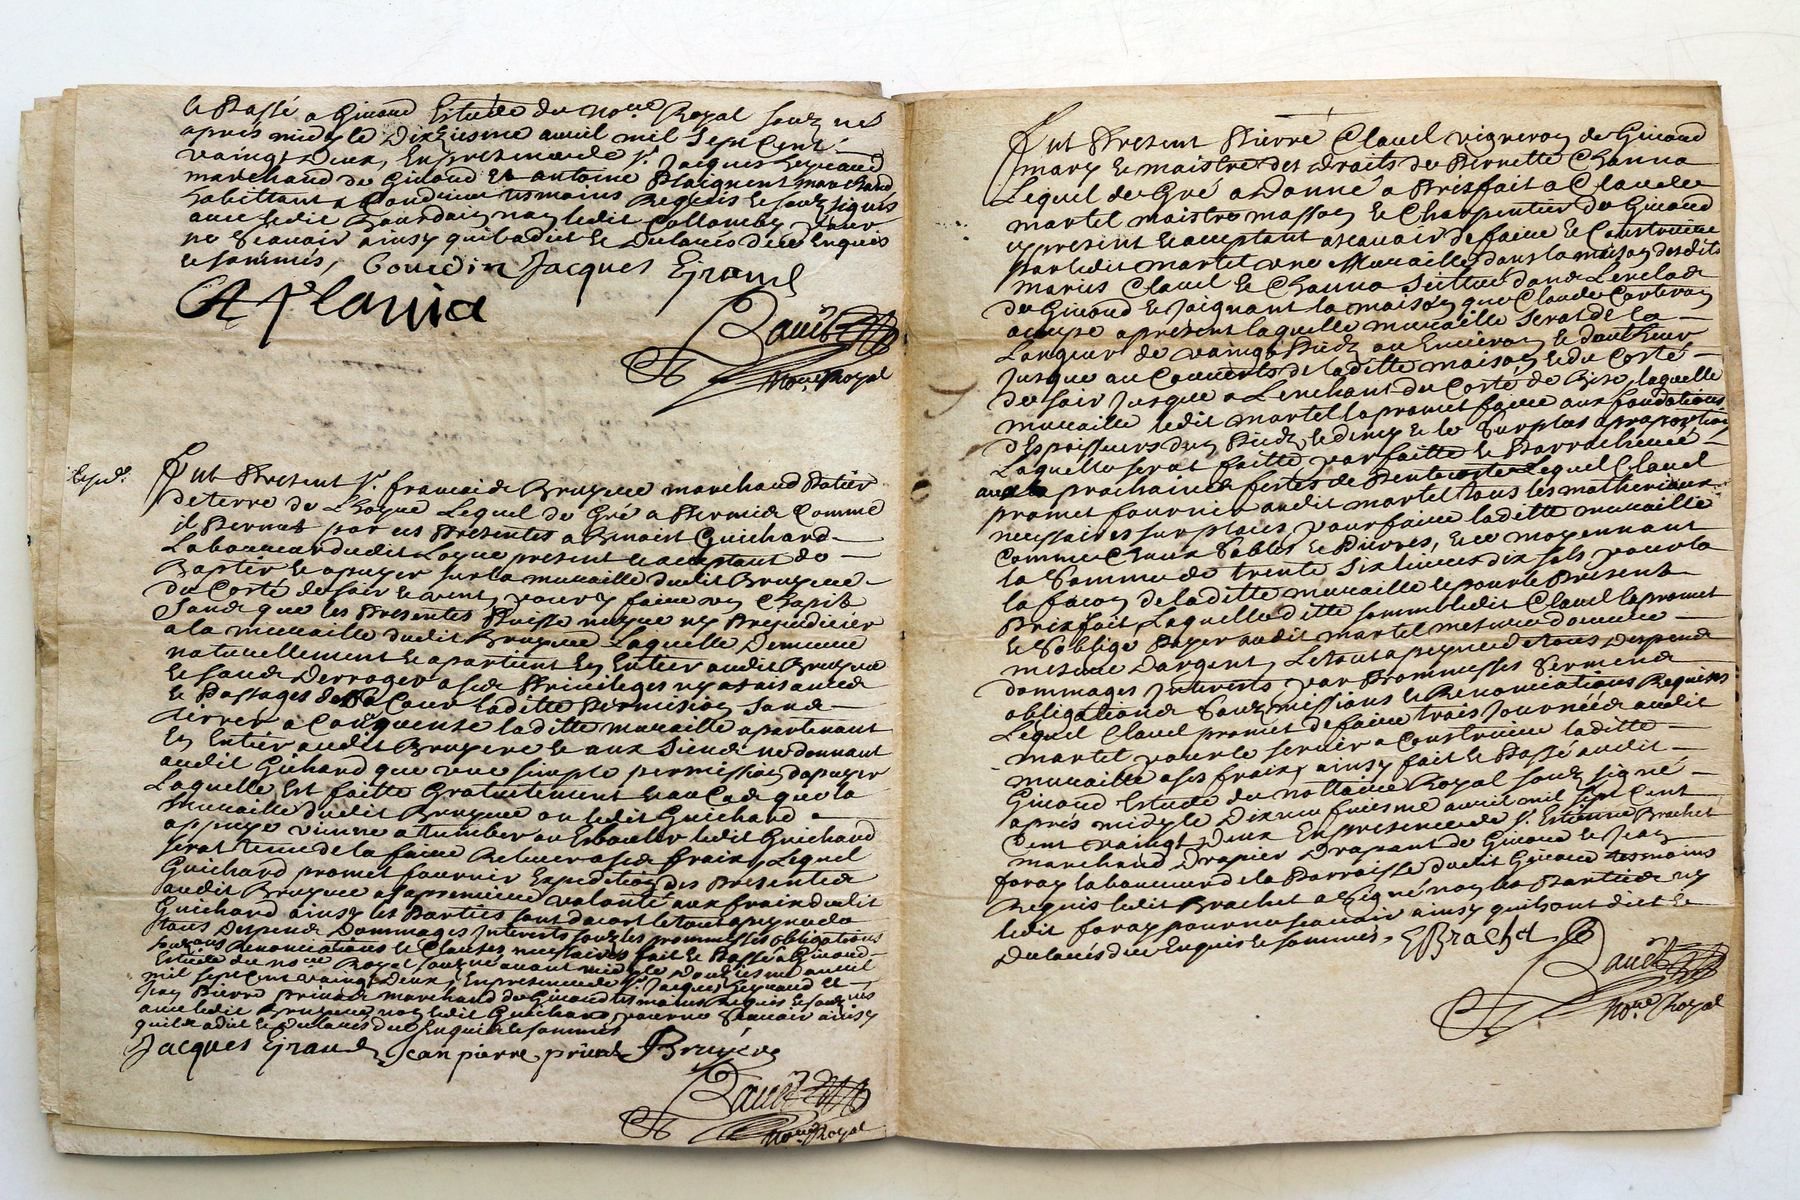 et Passé a Givord Estude du no.re Royal souz né
apres midy le Dixiesme avril mil sept Cent
vaingt Deux, En presence de s.r Jacques
marchand de Givord et antoine marchand
habittant a Condrieu tesmoins Requis et souz signés
avec ledit Bourdin non ledit Collomby pour
ne scavoir ainsy quil a dit et Dulavés deue Enquis
et sommés, Bourdin Jacques Eyraud
no.re Royal
Exped.é
Fut Present s.r francois Bruyere marchand Potier
de terre de Lhoyre Lequel de Gré a Permis Comme
il Permet par ces Presentes a Benoist Guichard
Laboureur dudit present et acceptant de
Bastir et apuyer sur la muraille dudit Bruyere
du Costé de soir et vent pour y faire un Chapit
sans que les Presentes Puisse nuyre ny Prejudicier
a la muraille dudit Bruyere Laquelle Demeure
naturellement et apartient En Entier audit Bruyere
et sans Derroger a ses Privileges ny aisances
et Passages de sa Cour ladite Permission sans
tirrer a Consequense laditte muraille apartenant
En Entier audit Bruyere et aux siens ne donnant
audit Gichard que une simple permission dapuyer
Laquelle Est faitte Gratuitement et au Cas que la
Muraille dudit Bruyere ou ledit Guichard
appuye vienne a tumber ou Esbouler ledit Guichard
serat tenu de la faire Relever a ses fraix, Lequel
Guichard promet fournir Expedition des Presentes
audit Bruyere a sa premiere volonté aux frais dudit
Guichard ainsy les Parties sont dacort le tout a peyne de
tous Despens Dommages Interests souz les promesses obligations
Renonciations et Clauses necessaires fait et Passé a Givord
Estude du no.re Royal souz né avant midy le Douziesme avril
mil sept Cent vaingt Deux, En presence de s.r Jacques Eyraud et
Jean Pierre privat marchand de Givord tesmoins Requis et souz nés
avec ledit Bruyere non ledit Guichard pour ne scavoir ainsy
quil a dit et Dulavés due Enquis et sommés
Jacques Eyraud Jean pierre privat Bruyere
no.re Royal
Fut Present Pierre Clavel vigneron de Givord
mary et maistre des droits de Pierrette Channa
Lequel de Gré a Donné a Prixfait a Claude
martel maistre masson et Charpentier de Givord
cy present et acceptant ascavoir de faire et Construire
par ledit martel une Muraille dans la maison desdits
mariés Clavel et Channa scittué dans Lenclos
de Givord et Joignant la maison que Claude
acupe a present laquelle muraille serat de la
Longeur de vaingt Piedz ou Environ et dautheur
Jusque au Couverts de laditte maison et du Costé
de soir Jusque a Lenchant du Costé de Bize, laquelle
muraille ledit martel la promet faire aux fondations
despaisseurs dun Piedz et demy et le surplus a proportion
Laquelle serat faitte parfaitte et Parrachevée
aux prochaines festes de Pentecoste Lequel Clavel
promet fournir audit martel tous les matheriaux
necessaires sur place pour faire laditte muraille
Comme Chaux sables et Pierres, et ce moyennant
la somme de trente six livres dix sols pour la
la facon de laditte muraille et pour le Present
Prixfait Laquelle ditte somme ledit Clavel la promet
et soblige Payer audit martel mesure douvre
mesure Dargent, Le tout a peyne de tous Despens
dommages Interests par Prommesses serment
obligations souzmissions et Renonciations Requises
Lequel Clavel promet de faire trois Journées audit
martel pour le servir a Construire laditte
muraille a ses fraix, ainsy fait et Passé audit
Givord Estude du nottaire Royal souz signé
aprés midy le avril mil sept Cent
Cent vaingt Deux En presence de s.r Estienne Brachet
marchand Drapier Drapant de Givord et Jean
foray laboureur de la Parroisse dudit Givord tesmoins
Requis ledit Brachet a signé non les Parties ny
ledit foray pour ne scavoir ainsy quils ont dict et
Dulavés due Enquis et sommés, EBrachet
no.re Royal